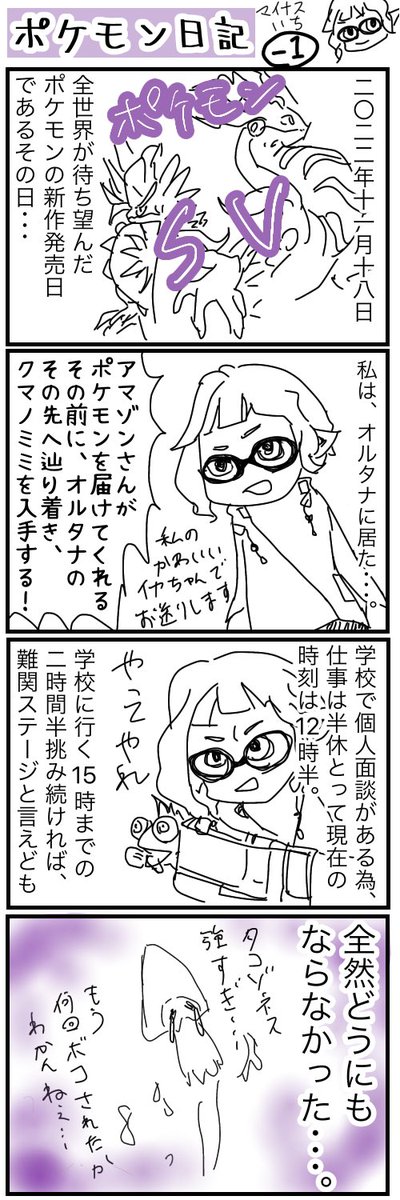 ポケモン日記
マイナス
いち
-1
二〇二二年十一月十八日
ポケモン
SV
全世界が待ち望んだ
ポケモンの新作発売日
であるその日・・・
私は、オルタナに居た・・・。
アマゾンさんが
ポケモンを届けてくれる
その前に、オルタナの
その先へ辿り着き、
クマノミミを入手する!
私の
かわいい
イカちゃんで
お送りします
学校で個人面談がある為、
仕事は半休とって現在の
時刻は12時半。
やってやれ
学校に行く15時までの
二時間半挑み続ければ、
難関ステージと言えども
全然どうにも
ならなかった・・・。
タコゾネス
強すぎ・・・
もう
何回ボコされたか
わかんねぇ・・・